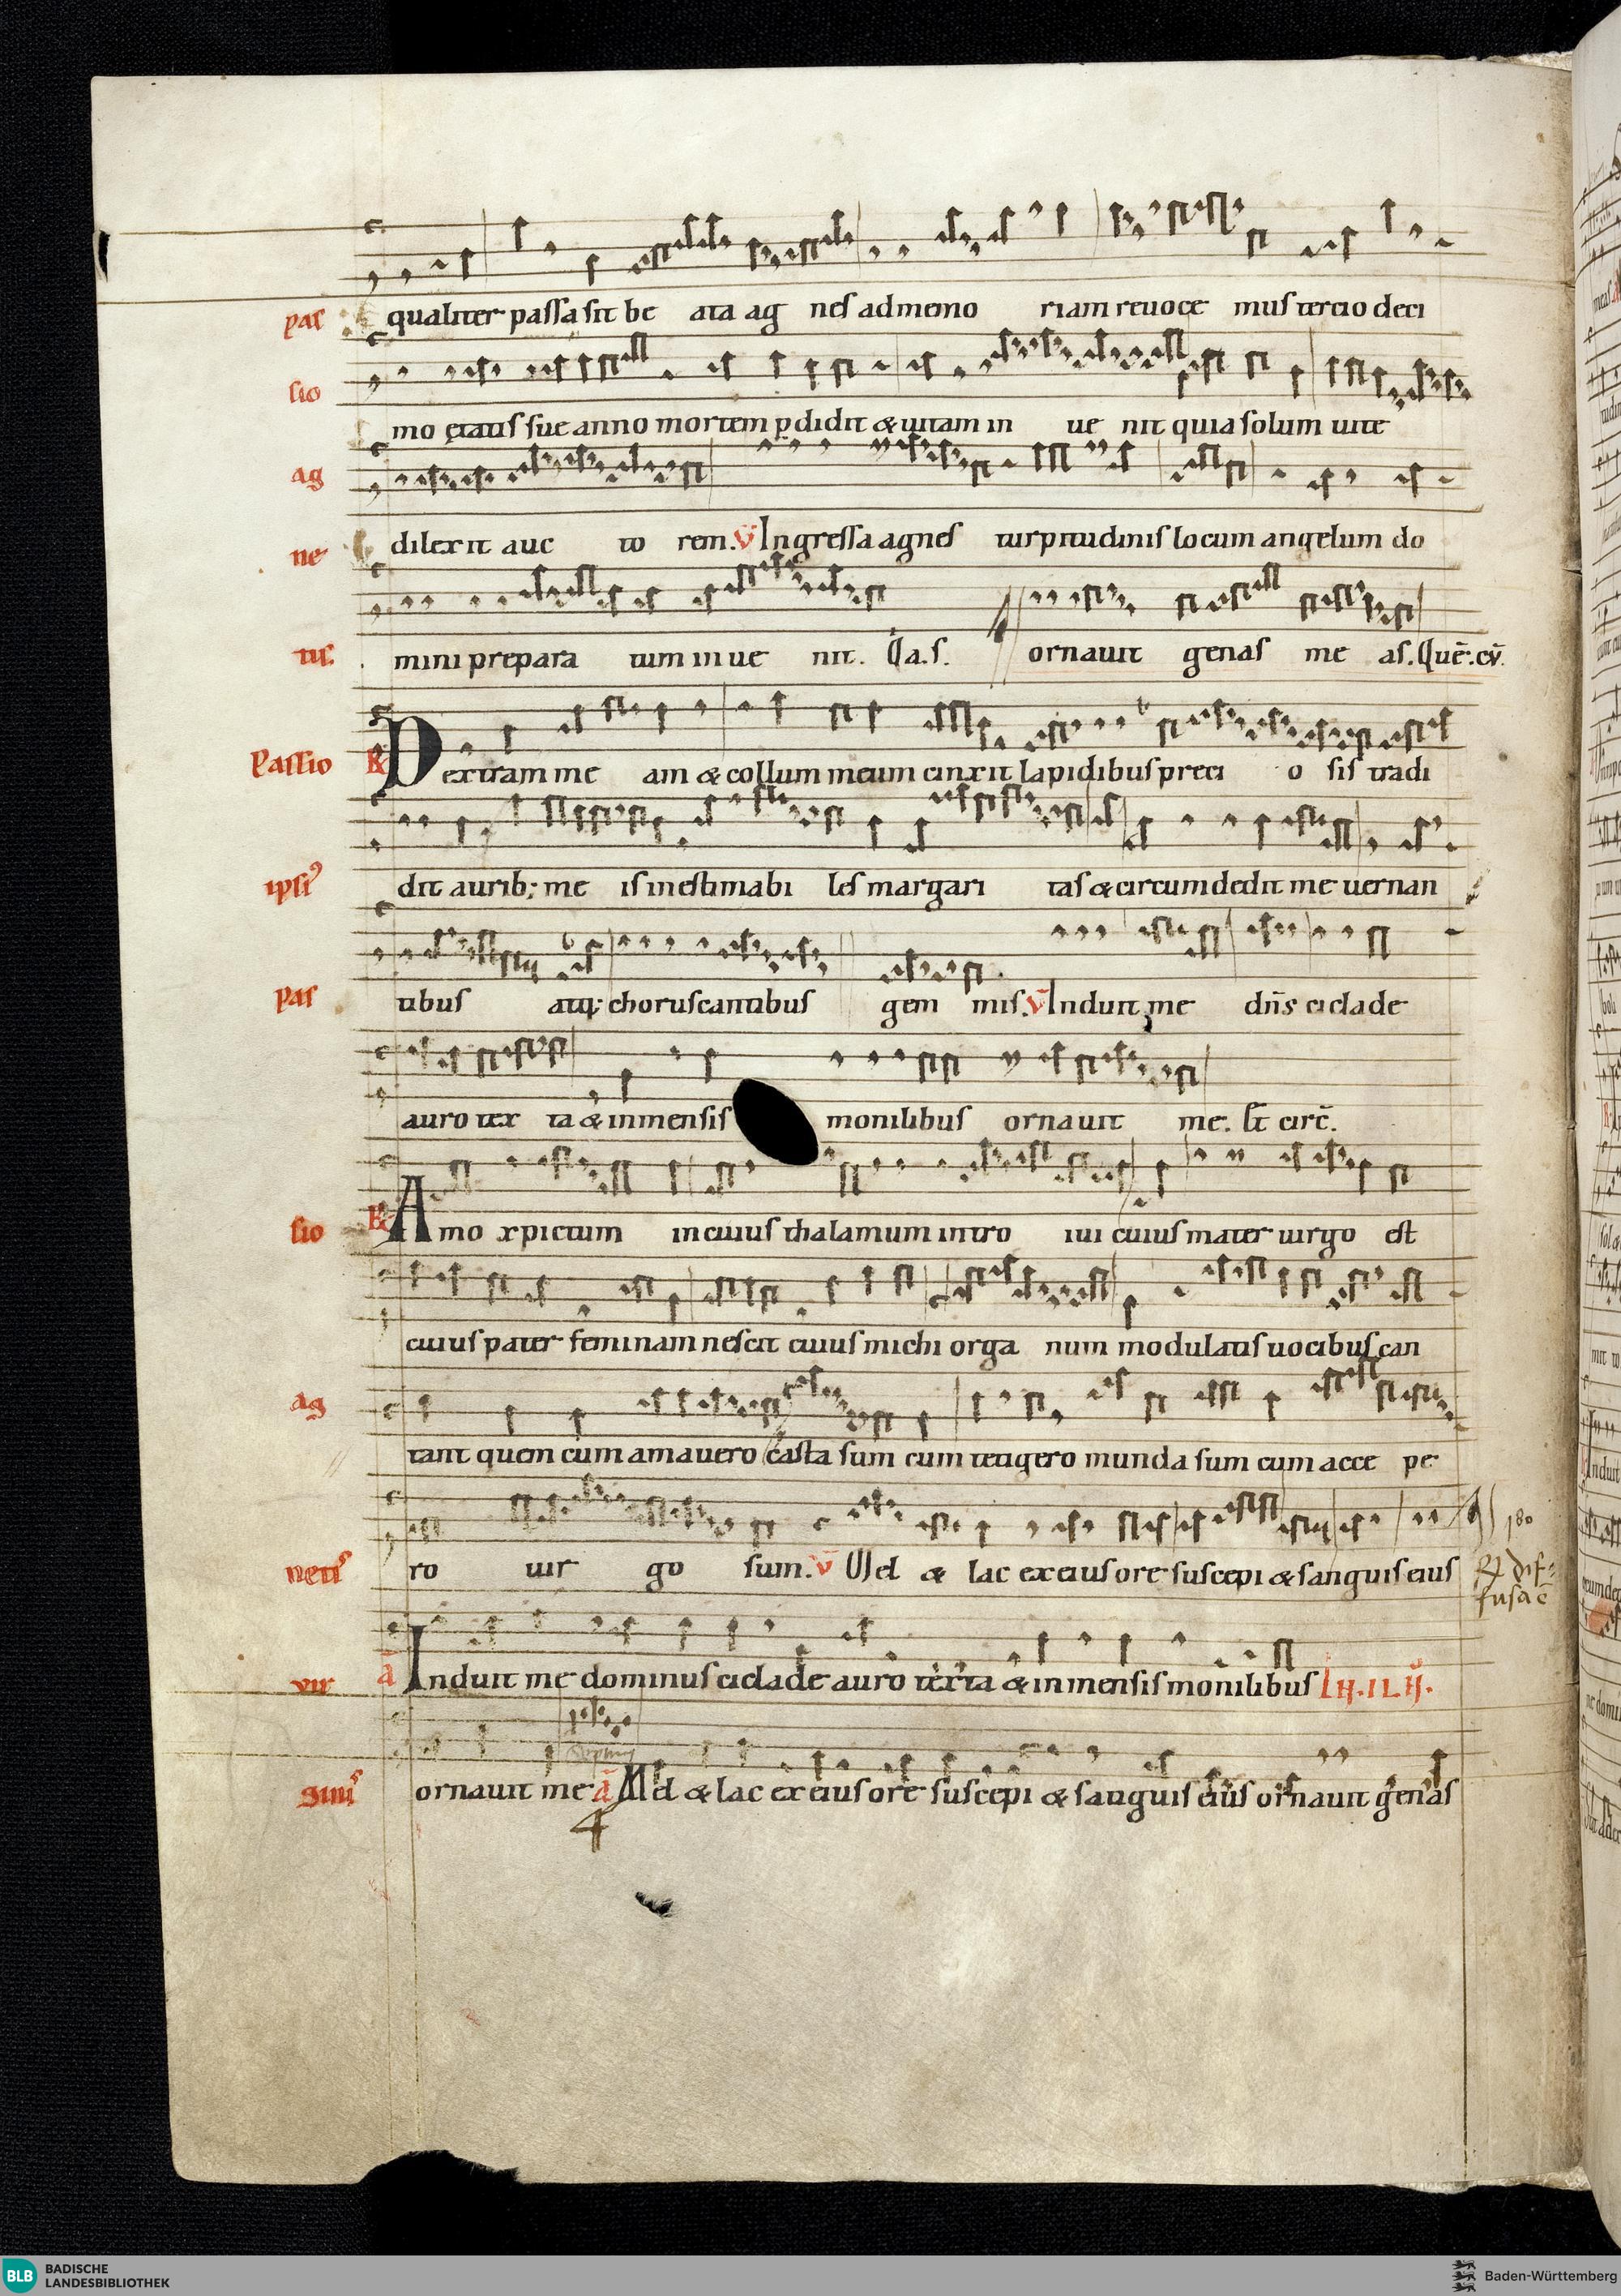 pas qualiter passa sit be ata ag nes ad memo riam revoce mus tercio deci
sio mo etatis sue anno mortem pdidit & vitam in ue nit quia solum uite
ag
ne dilexit auc to rem. V̄ Ingressa agnes turpitudinis locum angelum do
tis. mini prepara tum in ue nit. Qa.s. ornauit genas me as. Quē.cv̄.
Passio R Dextram me am & collum meum cinxit lapidibus preci o sis tradi
ipsi⁹ dit aurib; me is inestimabi les margari tas & circumdedit me uernan
Pas tibus atq; choruscantibus gem mis. V̄ Induit me dn̄s ciclade
auro tex ta & inmensis monilibus ornauit me. Et circ̄.
sio R Amo xpictum in cuius thalamum intro iui cuius mater uirgo est
cuius pater feminam nescit cuius michi orga num modulatis uocibus can
ag tant quem cum amauero casta sum cum tetigero munda sum cum acce pe
netis ro uir go sum. V̄ Mel & lac ex eius ore suscepi & sanguis eius
180
R dif=
fusa ē
vir ā Induit me dominus ciclade auro texta & inmensis monilibus
ginis ornauit me ā Mel & lac ex eius ore suscepi & sanguis eius ornauit genas
4
BLB BADISCHE
LANDESBIBLIOTHEK
Baden-Württemberg